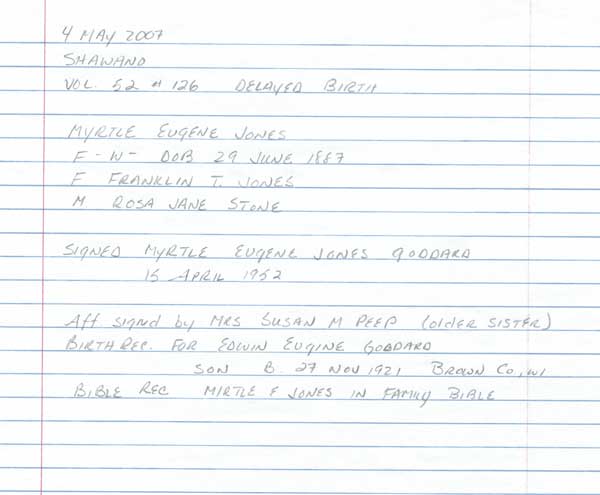 4 MAY 2007
SHAWANO
VOL. 52 # 126 DELAYED BIRTH
MYRTLE EUGENE JONES
F - W - DOB 29 JUNE 1887
F FRANKLIN T. JONES
M. ROSA JANE STONE
SIGNED MYRTLE EUGENE JONES GODDARD
15 APRIL 1952
Aff signed by MRS SUSAN M PEEP (OLDER SISTER)
BIRTH REC. FOR EDWIN EUGINE GODDARD
SON B. 27 NOV 1921 BROWN CO., WI
BIBLE REC MIRTLE E JONES IN FAMILY BIBLE